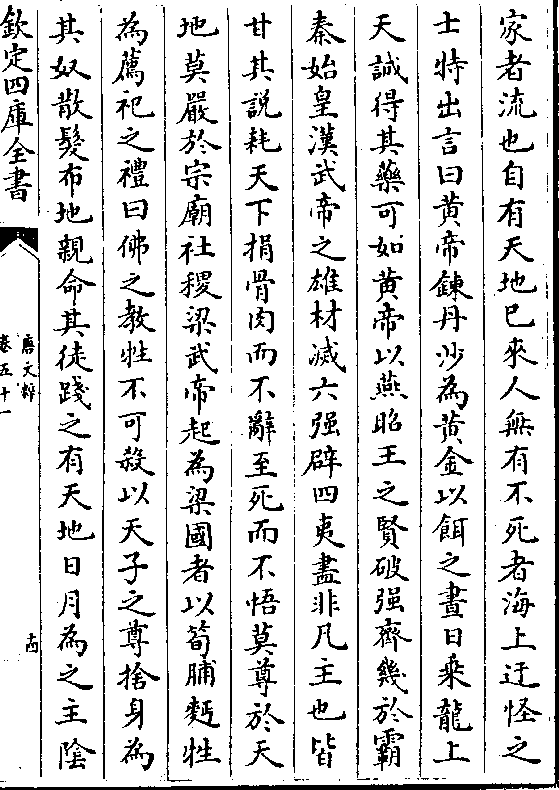 家者流也自有天地已來人無有不死者海上迂怪之
士特出言曰黄帝鍊丹沙為黄金以餌之晝日乘龍上
天誠得其藥可如黄帝以燕昭王之賢破强齊幾於霸
秦始皇漢武帝之雄材滅六强辟四夷盡非凡主也皆
甘其說耗天下捐骨肉而不辭至死而不悟莫尊於天
地莫嚴於宗廟社稷梁武帝起為梁國者以筍脯麪牲
為薦祀之禮曰佛之教牲不可殺以天子之尊捨身為
其奴散髮布地親命其徒踐之有天地日月為之主陰
欽定四庫全書
唐文粹
卷五十一
十四